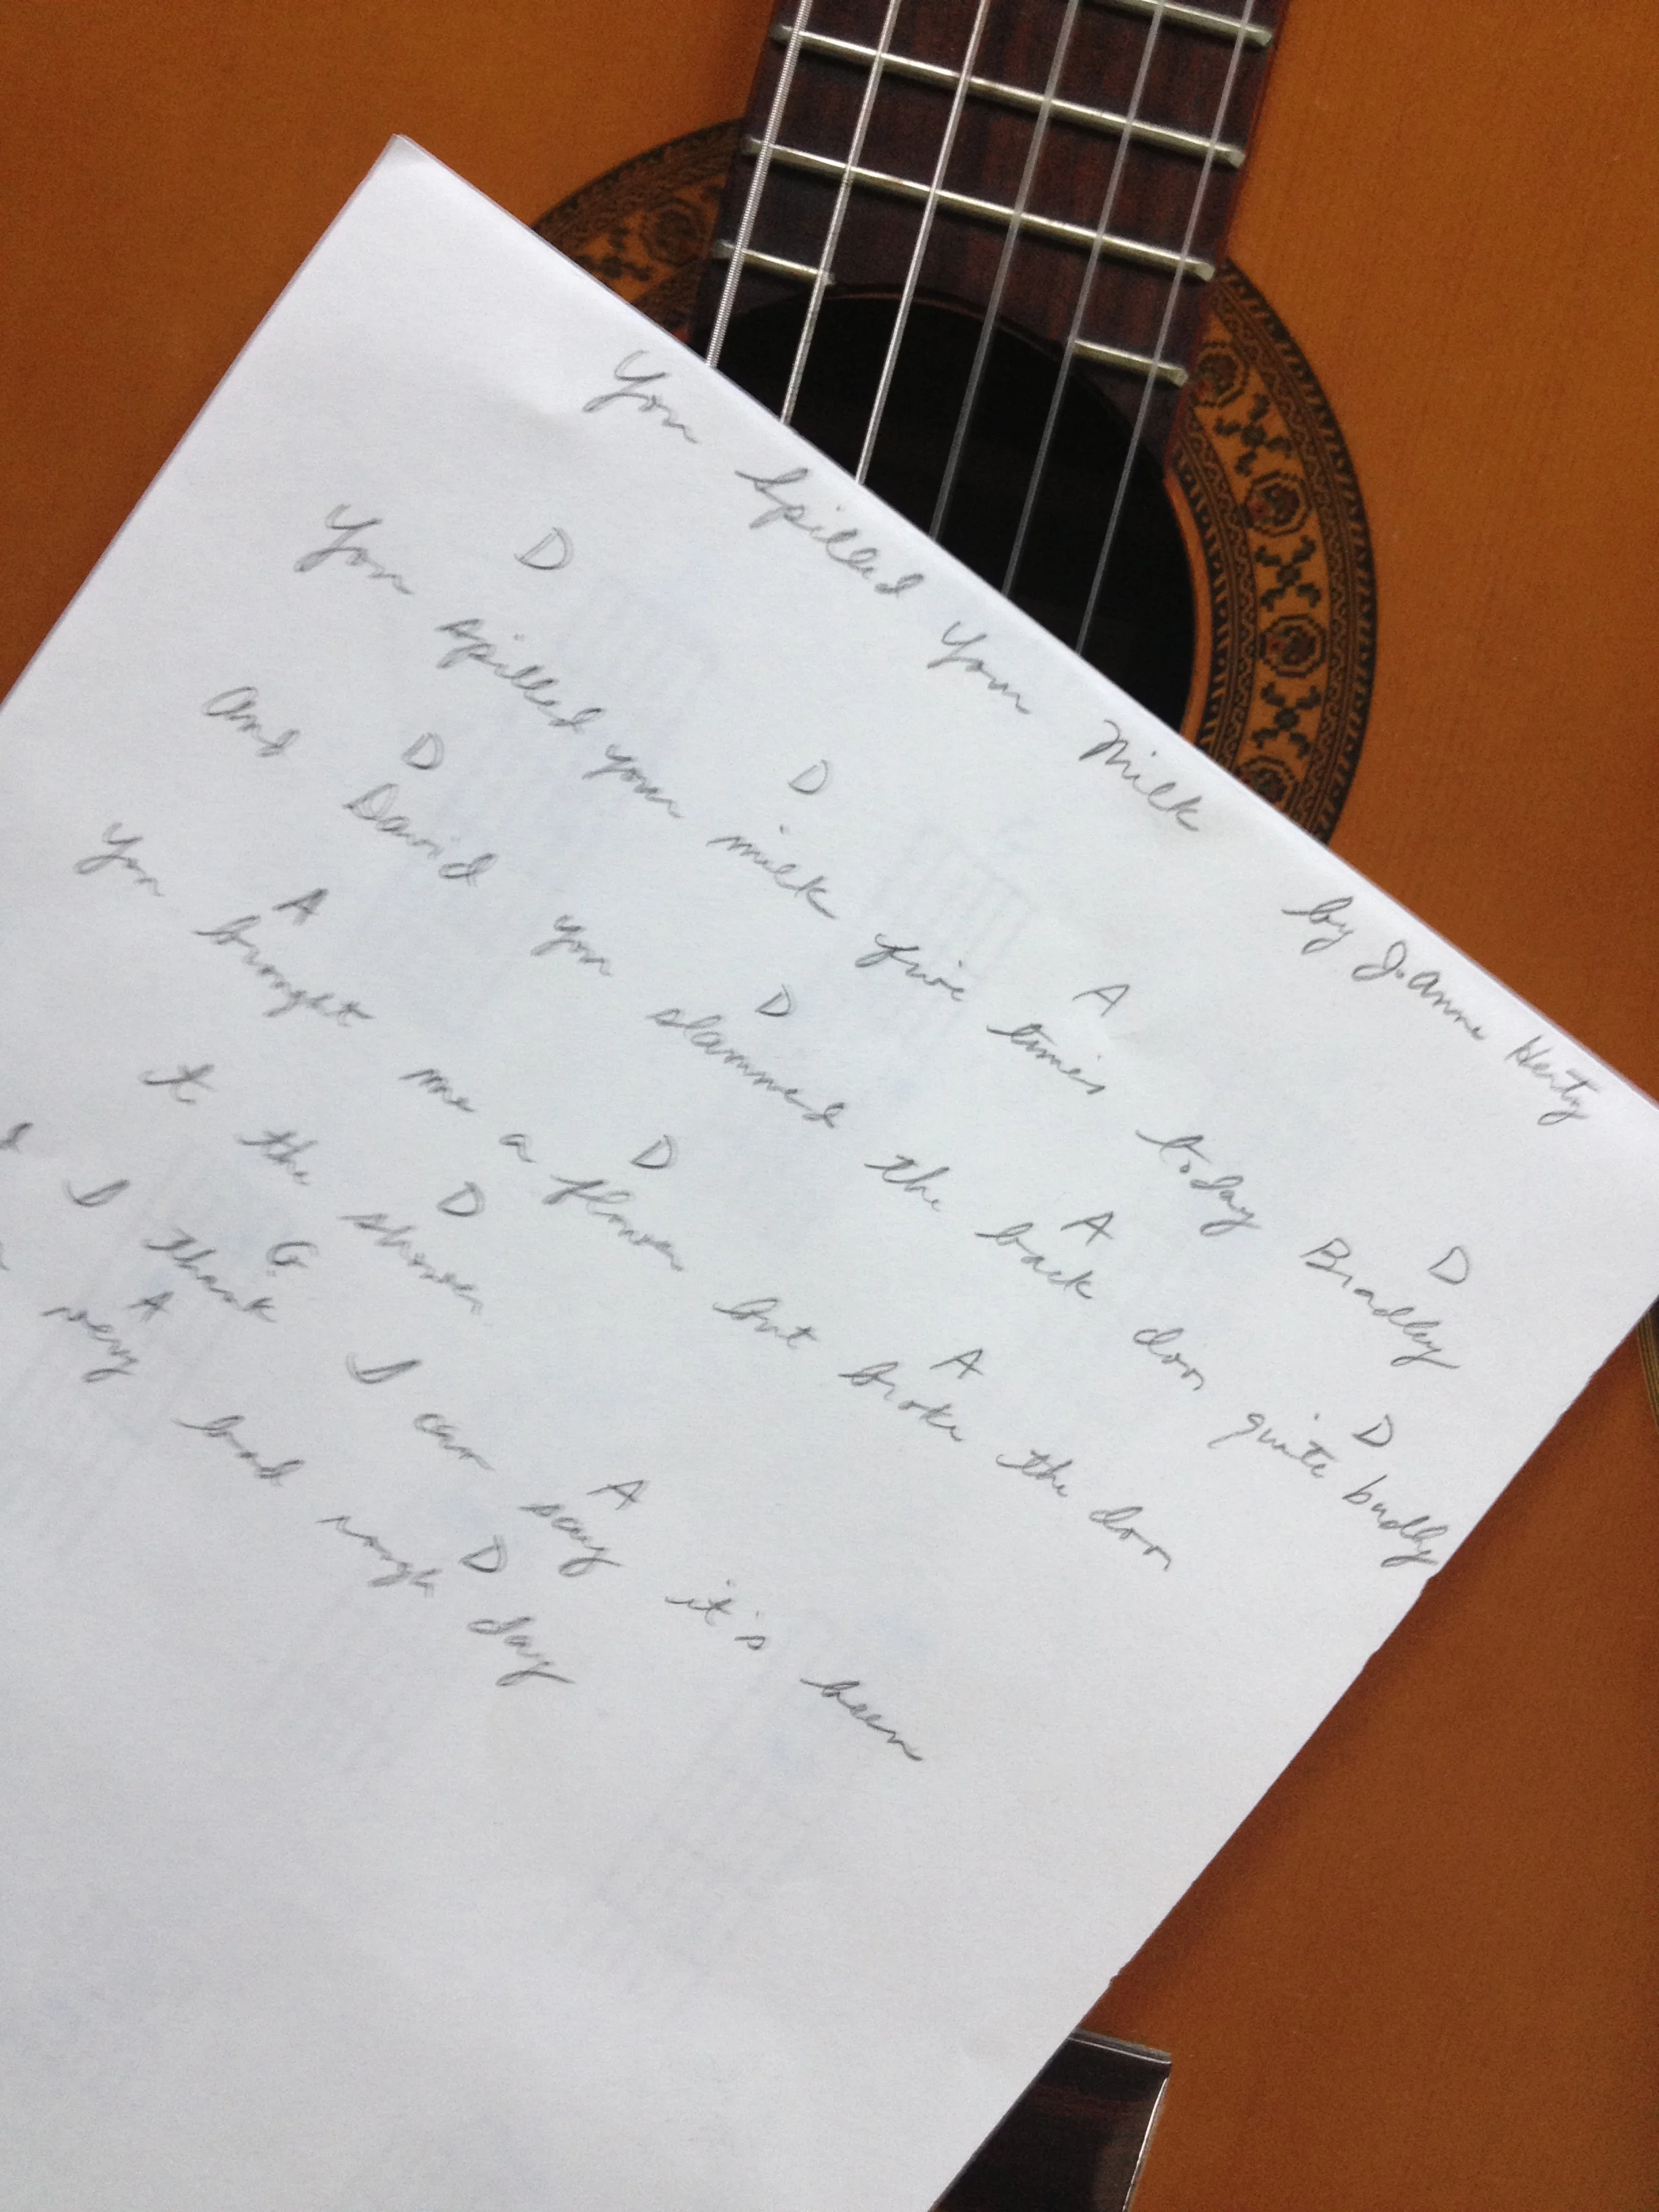 You Spilled Your Milk by J. Anne Herty
D D A D
You spilled your milk five times today Bradley
D D A D
And David you slammed the back door quite badly
A D A
You brought me a flower but broke the door
D
to the shower
G A
d I think I can say it's been
A D
very bad rough day